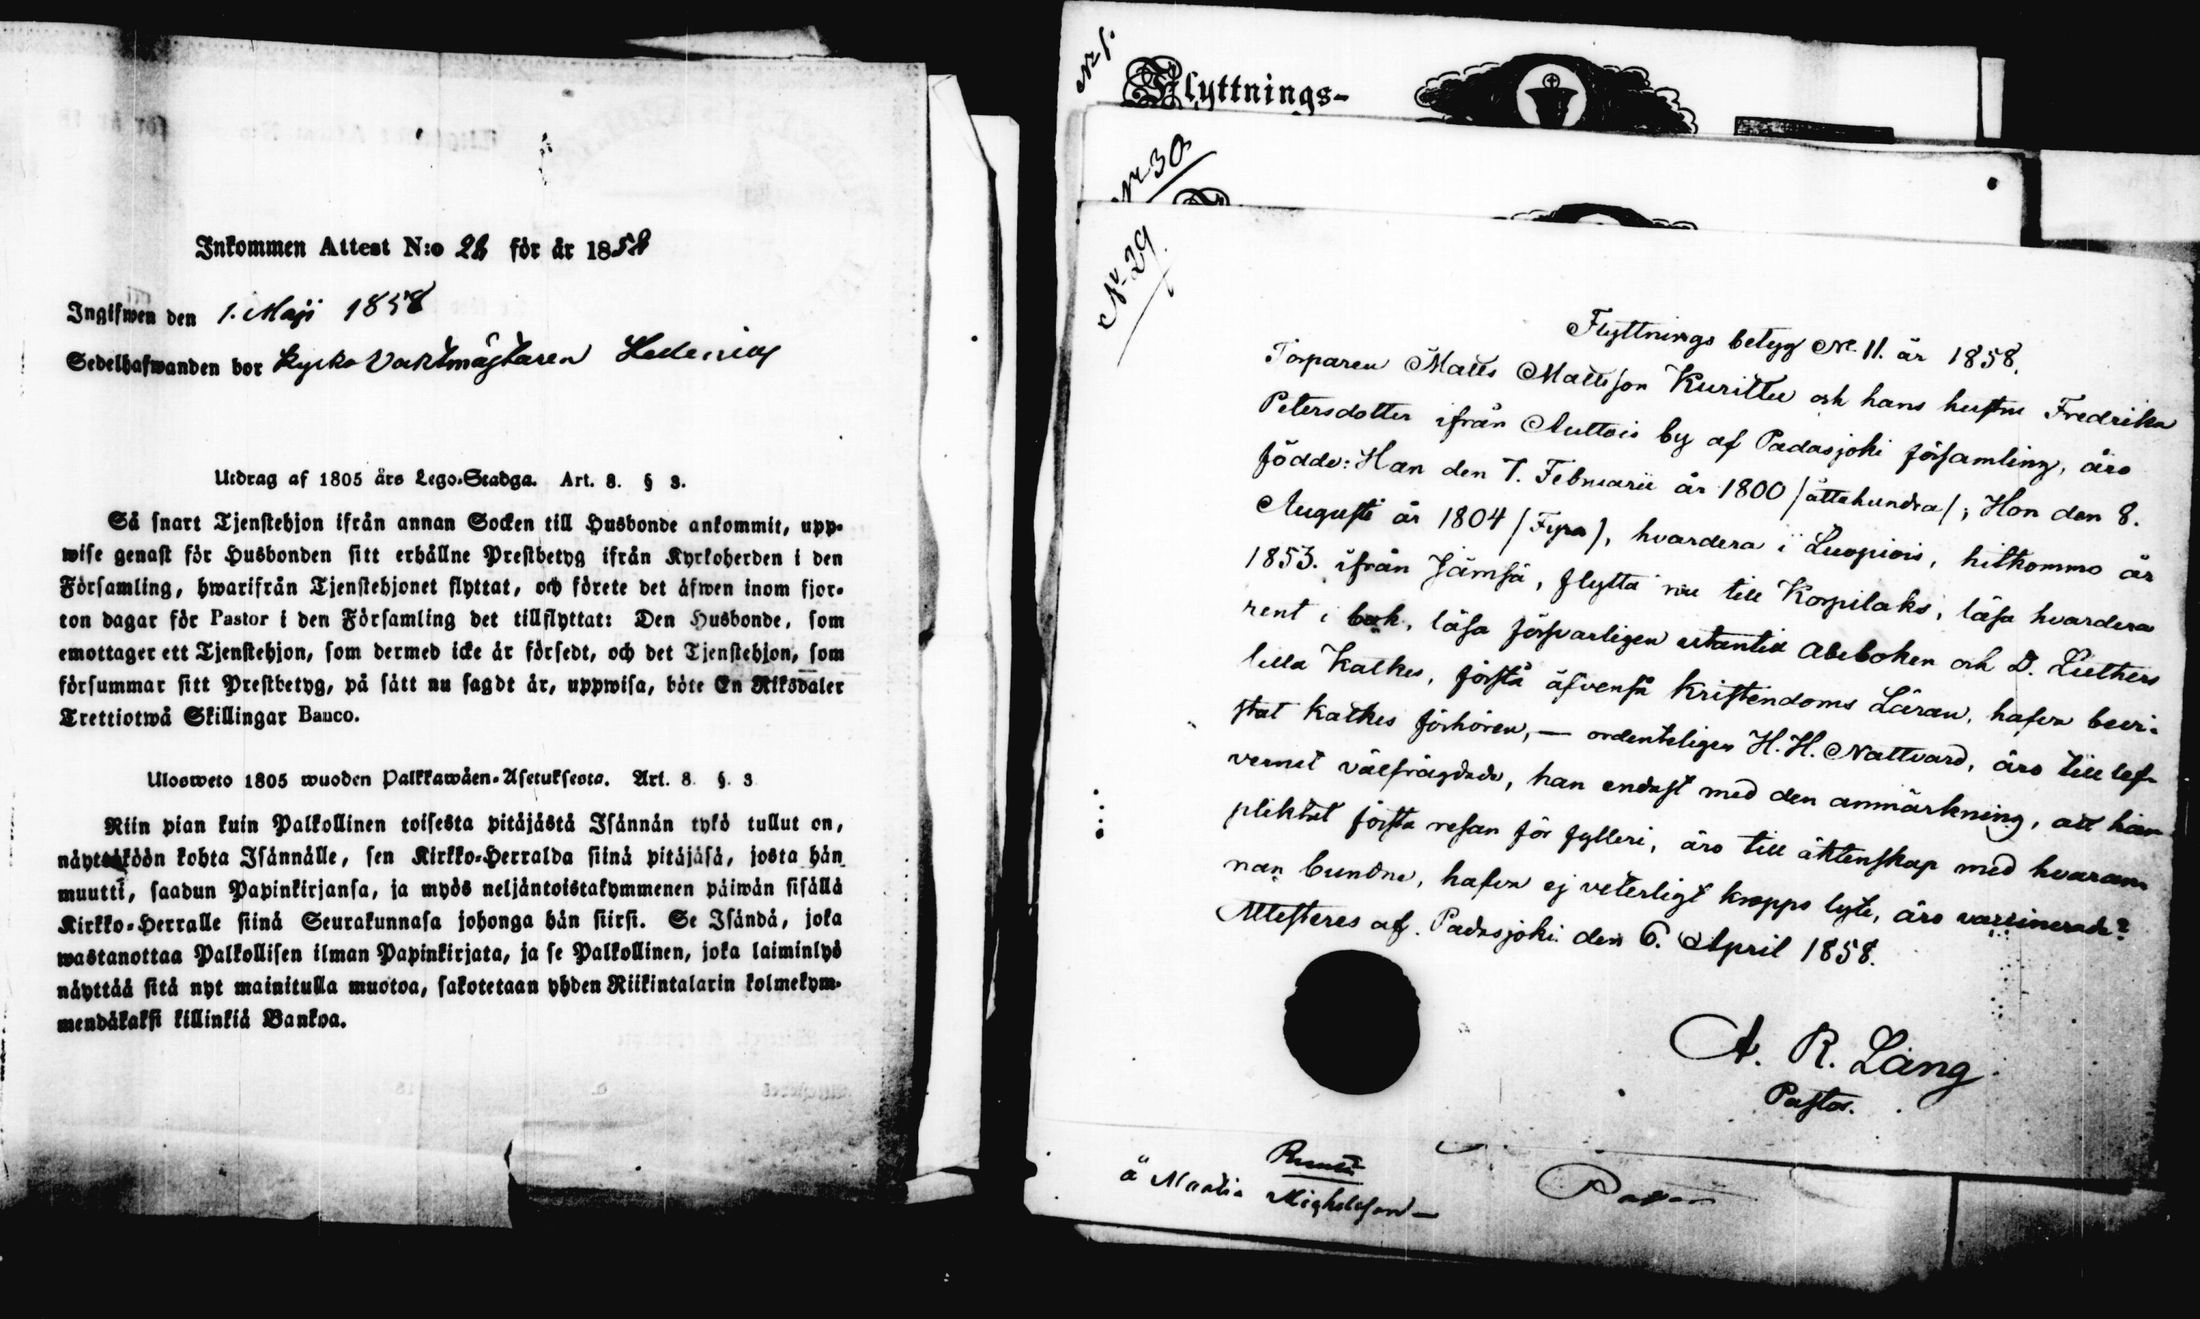 Inkommen Attest N:o 28 för år 1858
Ingifwen den 1. Maji 1858
Sedelhafwanden bor Kyrko Vaktmästaren Hedenius
Utdrag af 1805 års Lego-Stadga. Art. 8. § 3.
Så snart Tjenstehjon ifrån annan Socken till Husbonde ankommit, upp-
wise genast för Husbonden sitt erhållne Prestbetyg ifrån Kyrkoherden i den
Församling, hwarifrån Tjenstehjonet flyttat, och förete det äfwen inom fjor-
ton dagar för Pastor i den Församling det tillflyttat: Den Husbonde, som
emottager ett Tjenstehjon, som dermed icke är försedt, och det Tjenstehjon, som
försummar sitt Prestbetyg, på sätt nu sagdt är, uppwisa, böte En Riksdaler
Trettiotwå Skillingar Banco.
Ulosweto 1805 wuoden Palkkawäen-Asetuksesta. Art. 8. §. 3
Niin pian kuin Palkollinen toisesta pitäjästä Isännän tykö tullut on,
näyttäköön kohta Isännälle, sen Kirkko-Herralda siinä pitäjäsä, josta hän
muutti, saadun Papinkirjansa, ja myös neljäntoistakymmenen päiwän sisällä
Kirkko-Herralle siinä Seurakunnasa johonga hän siirsi. Se Isändä, joka
wastanottaa Palkollisen ilman Papinkirjata, ja se Palkollinen, joka laiminlyö
näyttää sitä nyt mainitulla muotoa, sakotetaan yhden Riikintalarin kolmekym-
mendäkaksi killinkiä Bankoa.
Nr 1.
Flyttnings-
Nr 30
Nr 29.
Flyttnings betyg No. 11. år 1858.
Torparen Matts Mattsson Kurittu och hans hustru Fredrika
Petersdotter ifrån Auttois by af Padasjoki församling, äro
födde: Han den 7. Februarii år 1800 /åttahundra/; Hon den 8.
Augusti år 1804 /Fyra/, hvardera i Luopiois, hitkommo år
1853. ifrån Jämsä, flytta nu till Korpilaks, läsa hvardera
rent i bok, läsa försvarligen utantill Abcboken och D. Luthers
lilla Katkes, förstå äfvenså Kristendoms Läran, hafva bevi-
stat Katkes förhören, — ordenteligen H. H. Nattvard, äro till lef-
vernet välfrägdade, han endast med den anmärkning, att han
pliktat första resan för fylleri, äro till äktenskap med hvaran-
nan bundne, hafva ej veterligt kropps lyte, äro vaccinerade?
Attesteres af. Padasjoki den 6. April 1858.
A. R. Lång
Pastor.
å Mathis Michelsson —